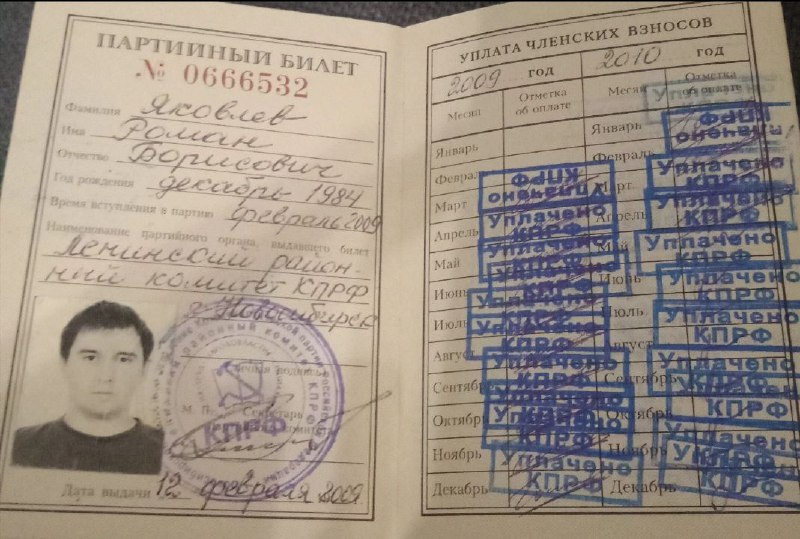 ПАРТИЙНЫЙ БИЛЕТ
№ 0666532
Фамилия Яковлев
Имя Роман
Отчество Борисович
Год рождения декабрь 1984
Время вступления в партию февраль 2009
Наименование партийного органа, выдавшего билет
Ленинский район-
ный комитет КПРФ
г. Новосибирск
Личная подпись
М. П. Секретарь
комитета
КПРФ
Дата выдачи 12 февраля 2009
УПЛАТА ЧЛЕНСКИХ ВЗНОСОВ
2009 год 2010 год
Месяц Отметка об оплате Месяц Отметка об оплате
Январь Январь Уплачено КПРФ
Февраль Февраль Уплачено КПРФ
Март Уплачено КПРФ Март Уплачено КПРФ
Апрель Уплачено КПРФ Апрель Уплачено КПРФ
Май Уплачено КПРФ Май Уплачено КПРФ
Июнь Уплачено КПРФ Июнь Уплачено КПРФ
Июль Уплачено КПРФ Июль Уплачено КПРФ
Август Уплачено КПРФ Август Уплачено КПРФ
Сентябрь Уплачено КПРФ Сентябрь Уплачено КПРФ
Октябрь Уплачено КПРФ Октябрь Уплачено КПРФ
Ноябрь Уплачено КПРФ Ноябрь Уплачено КПРФ
Декабрь Уплачено КПРФ Декабрь Уплачено КПРФ